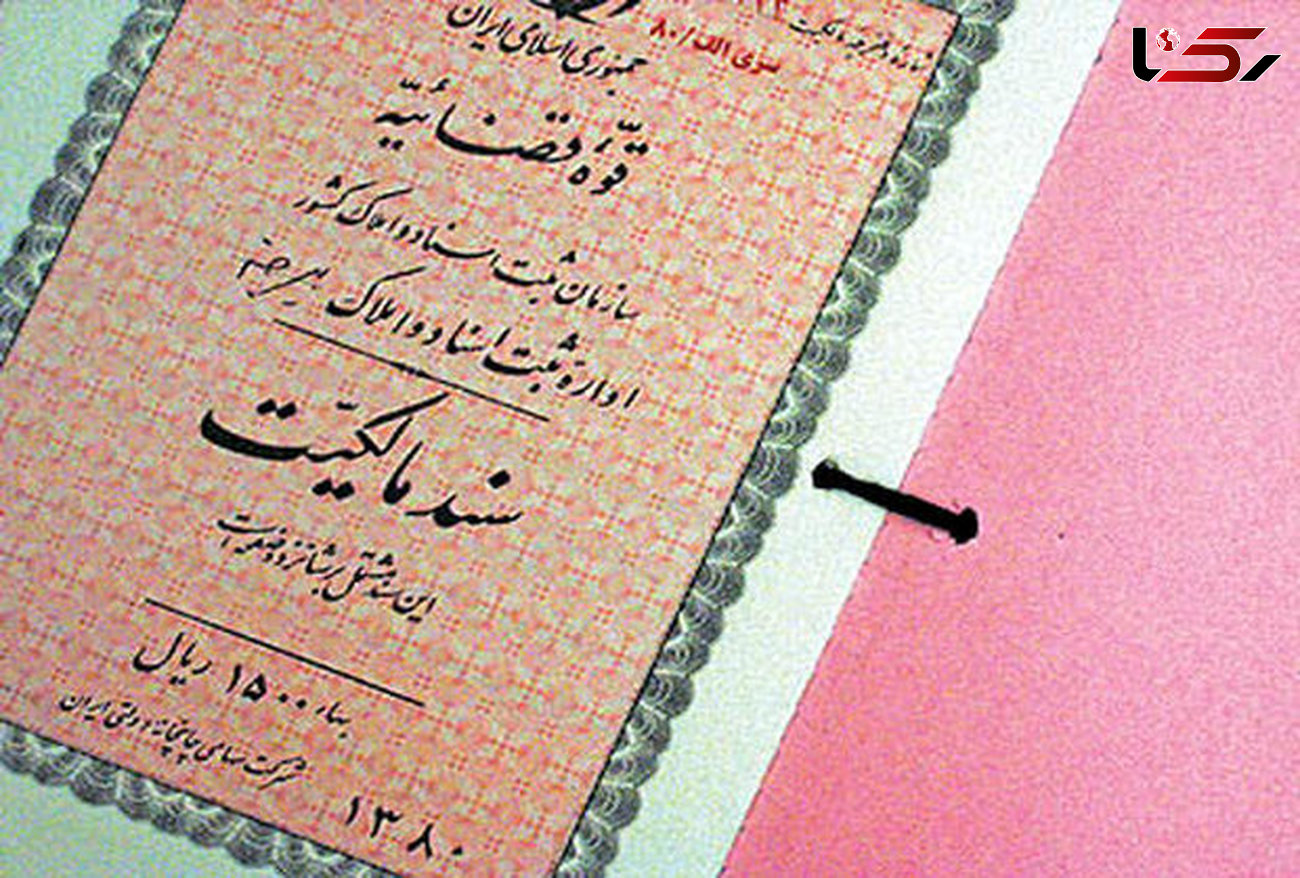 رکنا
شماره دفترچه مالکیت
سری الف/۸۰
جمهوری اسلامی ایران
قوّهٔ قضائیّه
سازمان ثبت اسناد و املاک کشور
ادارهٔ ثبت اسناد و املاک بیرجند
سند مالکیّت
این سند مشتمل بر شانزده صفحه است
بهاء ۱۵۰۰ ریال
شرکت سهامی چاپخانه دولتی ایران
۱۳۸۰